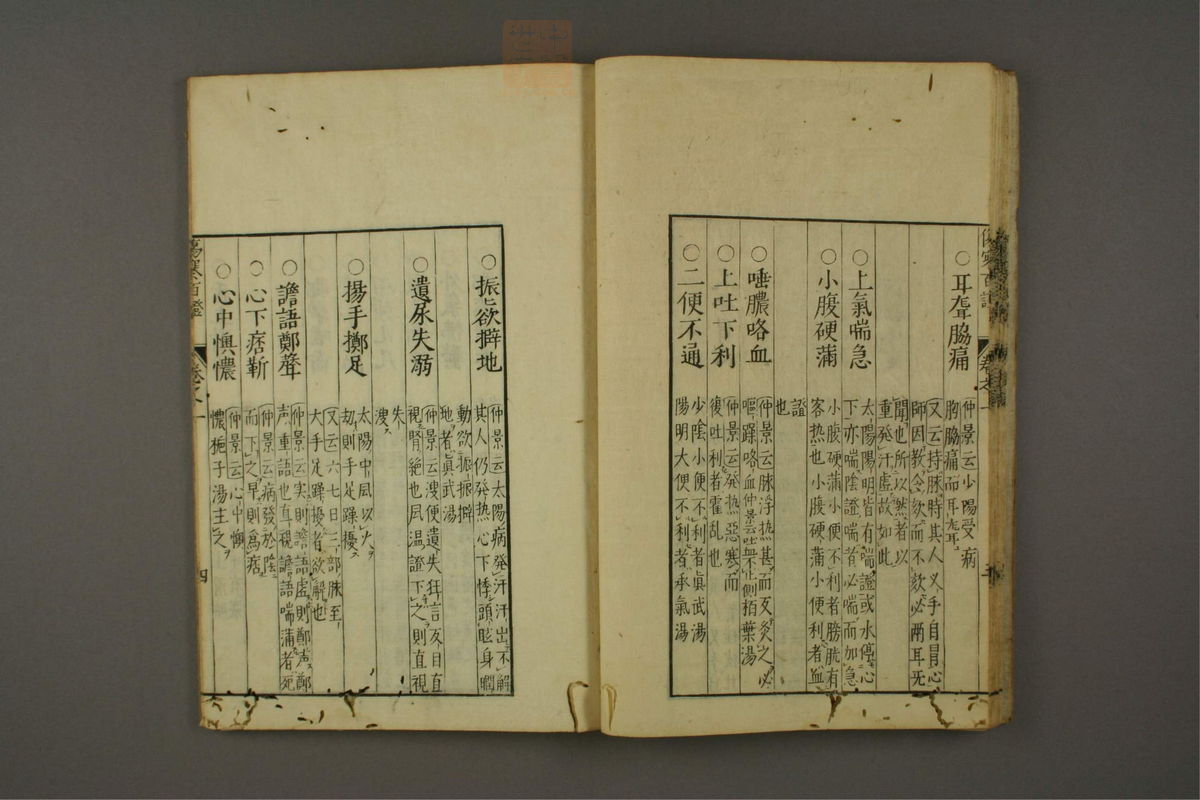 ○耳聾脇痛
仲景云少陽受病
胸脇痛而耳聾
又云持脉時其人叉手自冒心
師因教令欬而不欬必兩耳无
聞也所以然者以
重発汗虚故如此
○上氣喘急
太陽陽明皆有喘證或水停心
下亦喘陰證喘者必喘而加急
○小腹硬蒲
小腹硬蒲小便不利者膀胱有
客热也小腹硬蒲小便利者血
證
也
○唾膿咯血
仲景云脉浮热甚而反灸之必
嘔躁咯血仲景云吐血不止側栢葉湯
○上吐下利
仲景云発热惡寒而
復吐利者霍乱也
○二便不通
少陰小便不利者眞武湯
陽明大便不利者承氣湯
○振〻欲擗地
仲景云太陽病発汗汗出不解
其人仍発热心下悸頭眩身瞤
動欲振振擗
地者眞武湯
○遺尿失溺
仲景云溲便遺失狂言反目直
視腎絶也风温證下之則直視
失
溲
○揚手擲足
太陽中风以火
刼則手足躁擾
又云六七日三部脉至
大手足躁擾者欲解也
○譫語鄭聲
仲景云实則譫語虚則鄭声鄭
声重語也直視譫語喘蒲者死
○心下痞靳
仲景云病發於陰
而下之早則爲痞
○心中懊憹
仲景云心中懊
憹梔子湯主之
傷寒百證
卷之一
四